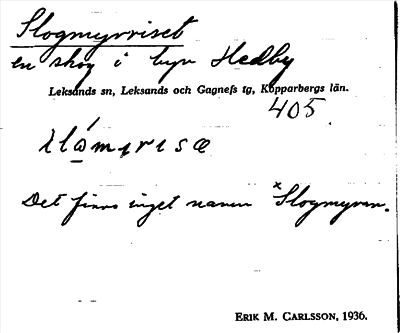 Slogmyrriset
en skog i byn Hedby
Leksands sn, Leksands och Gagnefs tg, Kopparbergs län.
405
Det finns inget namn ˣSlogmyren.
ERIK M. CARLSSON, 1936.